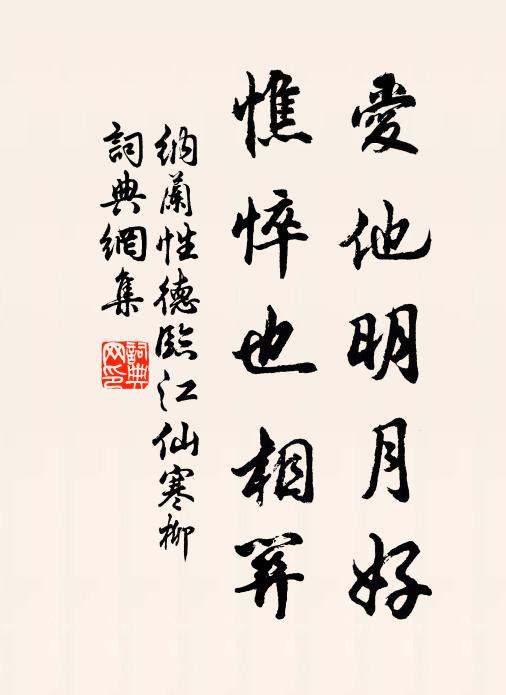 愛他明月好
憔悴也相關
納蘭性德臨江仙寒柳
詞典網集
詞典
网印